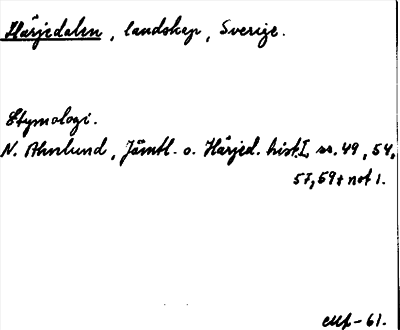 Härjedalen, landskap, Sverige.
Etymologi.
N. Ahnlund, Jämtl. o. Härjed. hist. I, ss. 49, 54,
57, 59 + not 1.
-61.